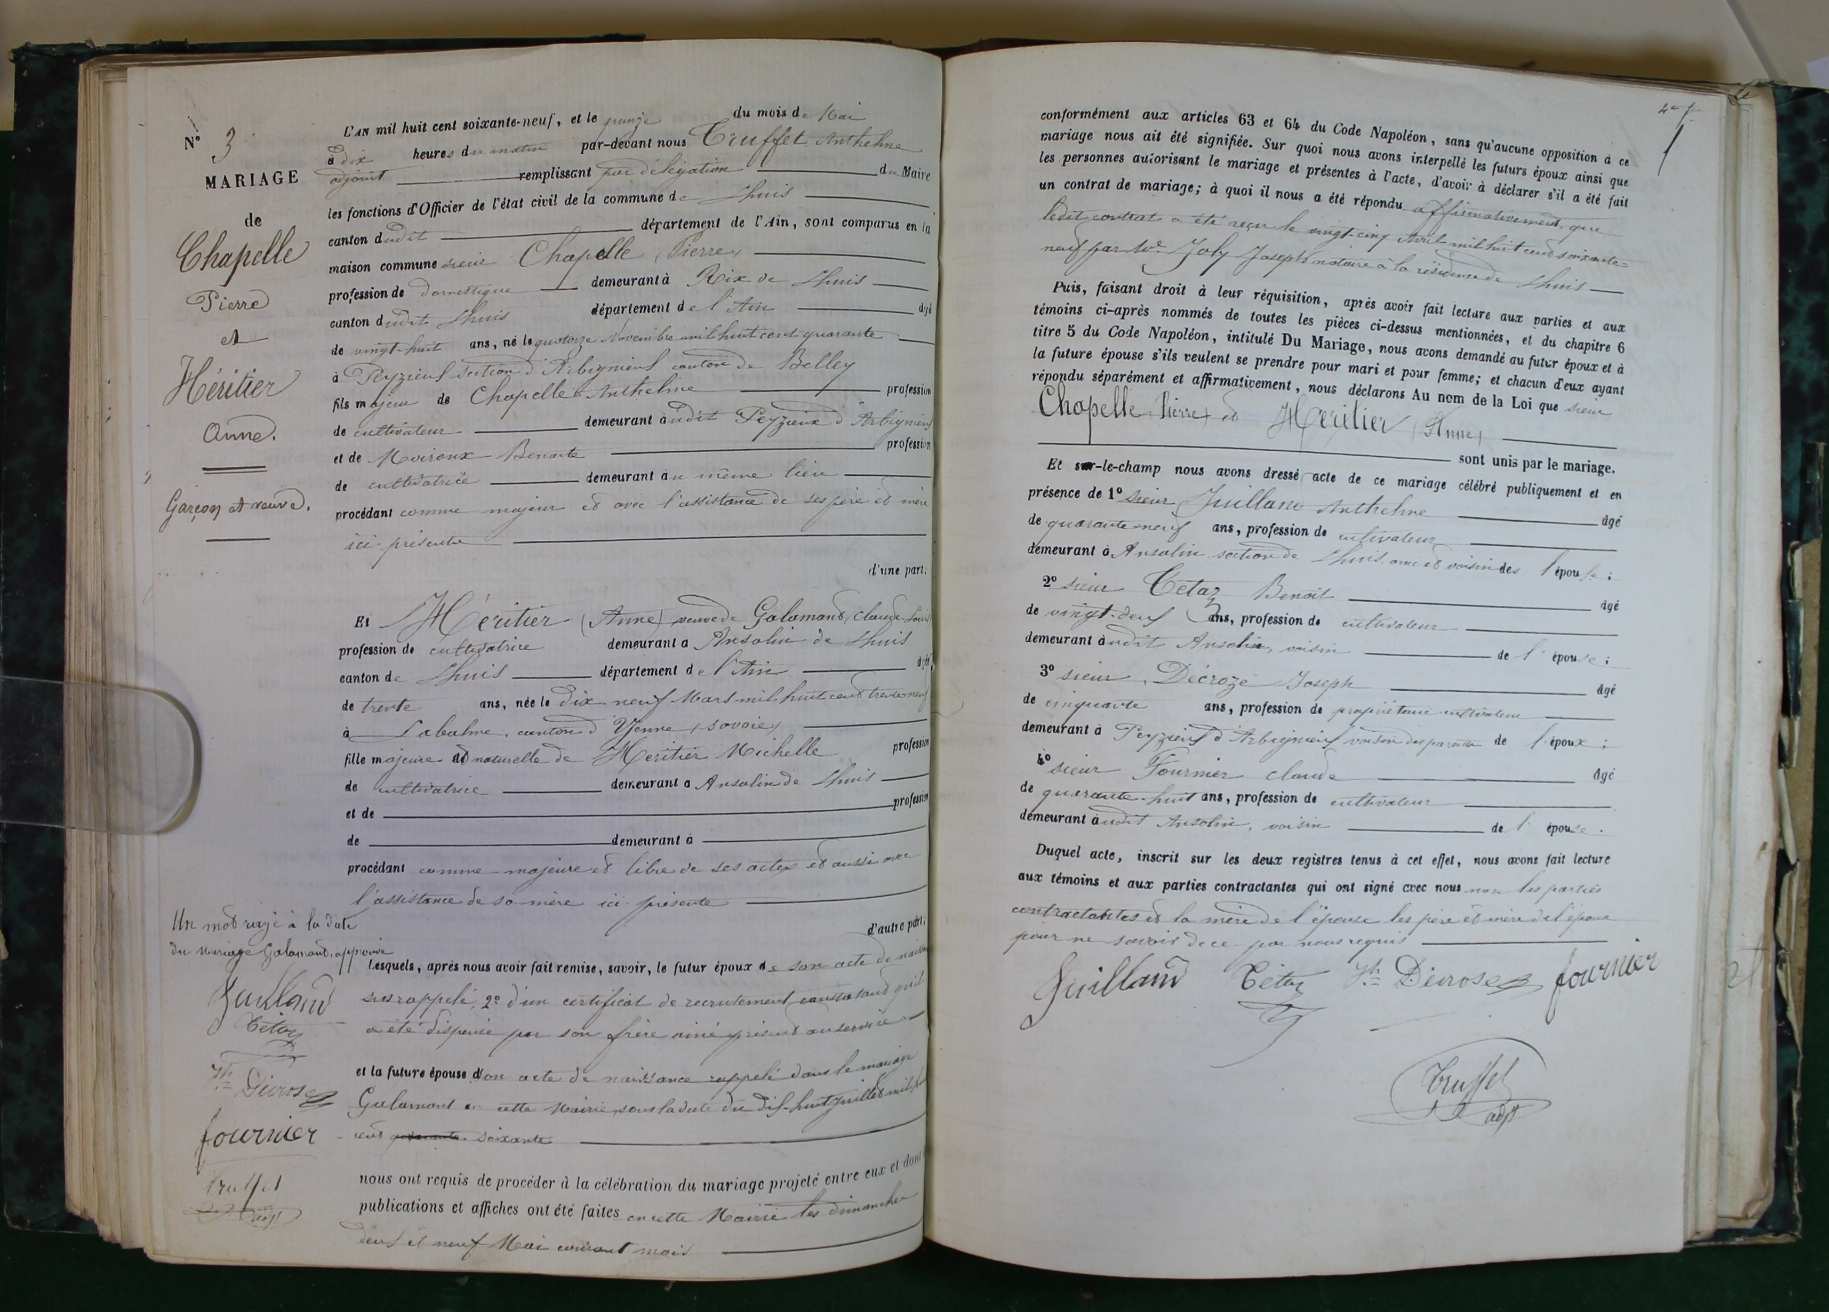 N° 3
MARIAGE
de
Chapelle
Pierre
et
Héritier
Anne.
Garçon et veuve.
Un mot rayé à la date
du mariage Galamand, approuvé
Juilland
Tétaz
Jh Décrose
fournier
Truffet
adjt
L'AN mil huit cent soixante-neuf, et le quinze du mois de Mai
à dix heures du matin par-devant nous Truffet Anthelme
adjoint remplissant par délégation du Maire
les fonctions d'Officier de l'état civil de la commune de Lhuis
canton dudit département de l'Ain, sont comparus en la
maison commune sieur Chapelle (Pierre)
profession de domestique demeurant à Rix de Lhuis
canton dudit Lhuis département de l'Ain âgé
de vingt-huit ans, né le quatorze Novembre mil huit cent quarante
à Peyzieux section d'Arbignieux canton de Belley
fils majeur de Chapelle Anthelme profession
de cultivateur demeurant audit Peyzieux d'Arbignieux
et de Moiroux Benoite profession
de cultivatrice demeurant au même lieu
procédant comme majeur et avec l'assistance de ses père et mère
ici présents
d'une part.
Et Héritier (Anne) veuve de Galamand, Claude Louis
profession de cultivatrice demeurant à Ansolin de Lhuis
canton de Lhuis département de l'Ain âgée
de trente ans, née le dix neuf Mars mil huit cent trente neuf
à Labalme, canton d'Yenne (Savoie)
fille majeure et naturelle de Héritier Michelle profession
de cultivatrice demeurant à Ansolin de Lhuis
et de profession
de demeurant à
procédant comme majeure et libre de ses actes et aussi avec
l'assistance de sa mère ici présente
d'autre part.
Lesquels, après nous avoir fait remise, savoir, le futur époux de son acte de naissance
susrappelé, 2° d'un certificat de recrutement constatant qu'il
a été dispensé par son frère ainé présent au service
et la future épouse d'on acte de naissance rappelé dans le mariage
Galamand en cette Mairie, sous la date du dix-huit Juillet mil huit
cent soixante
nous ont requis de procéder à la célébration du mariage projeté entre eux et dont
publications et affiches ont été faites en cette Mairie les dimanches
deux et neuf Mai courant mois
conformément aux articles 63 et 64 du Code Napoléon, sans qu'aucune opposition à ce
mariage nous ait été signifiée. Sur quoi nous avons interpellé les futurs époux ainsi que
les personnes autorisant le mariage et présentes à l'acte, d'avoir à déclarer s'il a été fait
un contrat de mariage; à quoi il nous a été répondu affirmativement, que
ledit contrat a été reçu le vingt-cinq Avril mil huit cent soixante-
neuf par Me Joly Joseph notaire à la résidence de Lhuis
Puis, faisant droit à leur réquisition, après avoir fait lecture aux parties et aux
témoins ci-après nommés de toutes les pièces ci-dessus mentionnées, et du chapitre 6
titre 5 du Code Napoléon, intitulé Du Mariage, nous avons demandé au futur époux et à
la future épouse s'ils veulent se prendre pour mari et pour femme; et chacun d'eux ayant
répondu séparément et affirmativement, nous déclarons Au nom de la Loi que sieur
Chapelle (Pierre) et Héritier (Anne)
sont unis par le mariage.
Et sur-le-champ nous avons dressé acte de ce mariage célébré publiquement et en
présence de 1° sieur Juilland Anthelme âgé
de quarante-neuf ans, profession de cultivateur
demeurant à Ansolin section de Lhuis, ami et voisin des l'épouse;
2° sieur Tétaz Benoit âgé
de vingt-deux ans, profession de cultivateur
demeurant audit Ansolin, voisin de l'épouse;
3° sieur Décroze Joseph âgé
de cinquante ans, profession de propriétaire cultivateur
demeurant à Peyzieux d'Arbignieux voisin des parents de l'époux;
4° sieur Fournier Claude âgé
de quarante-huit ans, profession de cultivateur
demeurant audit Ansolin, voisin de l'épouse.
Duquel acte, inscrit sur les deux registres tenus à cet effet, nous avons fait lecture
aux témoins et aux parties contractantes qui ont signé avec nous non les parties
contractantes et la mère de l'épouse les père et mère de l'époux
pour ne savoir de ce par nous requis
Juilland Tétaz Jh Décrose fournier
Truffet
adjt